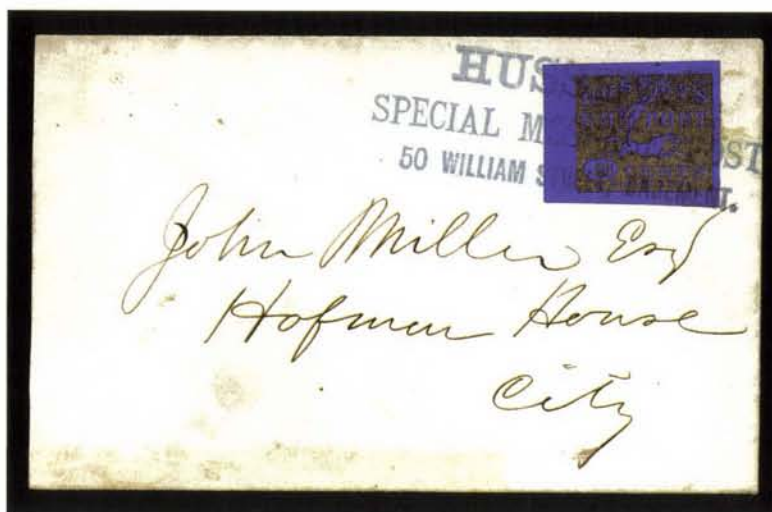 HUS
SPECIAL M OST
50 WILLIAM
John Miller Esq
Hofman House
City